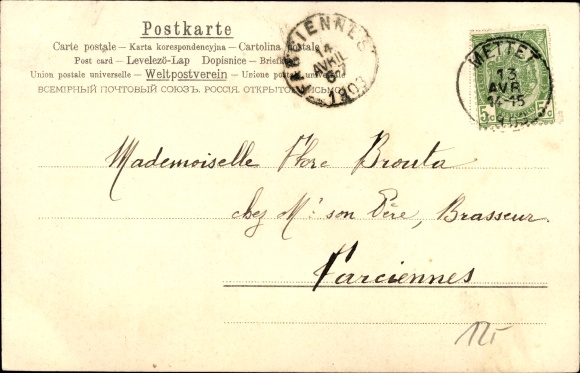 Postkarte
Carte postale — Karta korespondencyjna — Cartolina postale
Post card — Levelező-Lap Dopisnice — Briefk
Union postale universelle — Weltpostverein — Unione postale universale
ВСЕМІРНЫЙ ПОЧТОВЫЙ СОЮЗЪ. РОССІЯ. ОТКРЫТОЕ ПИСЬМО
FARCIENNES
AVRIL
1903
METTET
13
AVR
14-15
1903
5c 5c
Mademoiselle Flore Brouta
chez Mr son Père, Brasseur
Farciennes